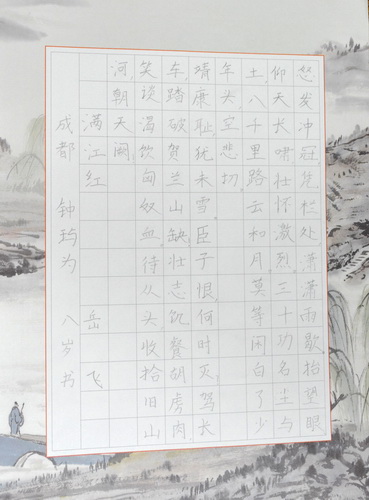 怒发冲冠,凭栏处,潇潇雨歇,抬望眼
仰天长啸,壮怀激烈,三十功名土与
土,八千里路云和月。莫等闲白了少
年头,空悲切。
靖康耻,犹未雪,臣子恨,何时灭,驾长
车,踏破贺兰山缺,壮志饥餐胡虏肉,
笑谈渴饮匈奴血,待从头收拾旧山
河,朝天阙。
满江红 岳飞
成都 钟 为 八岁书